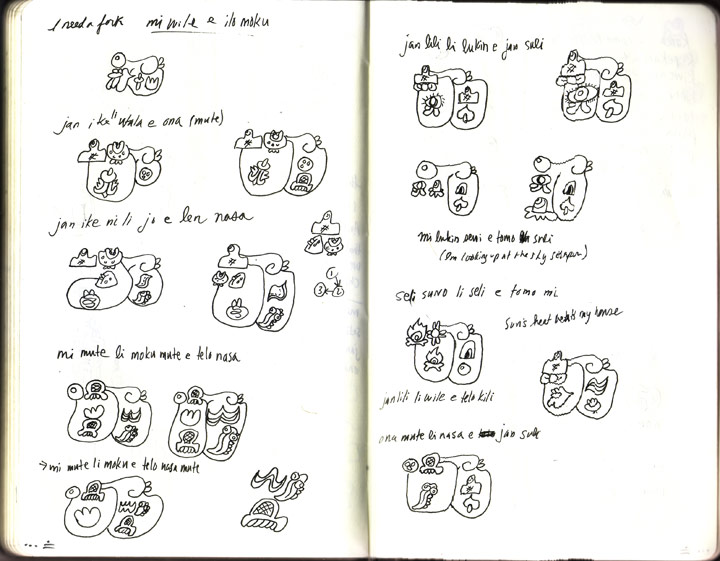 I need a fork mi wile e ilo moku
jan ike li wala e ona (mute)
jan ike ni li jo e len nasa
1
3 2
mi mute li moku mute e telo nasa
→ mi mute li moku e telo nasa mute
jan lili li lukin e jan suli
mi lukin sewi e tomo suli
(I'm looking up at the sky scraper)
seli suno li seli e tomo mi
Sun's heat heats my house
jan lili li wile e telo kili
ona mute li nasa e jan suli